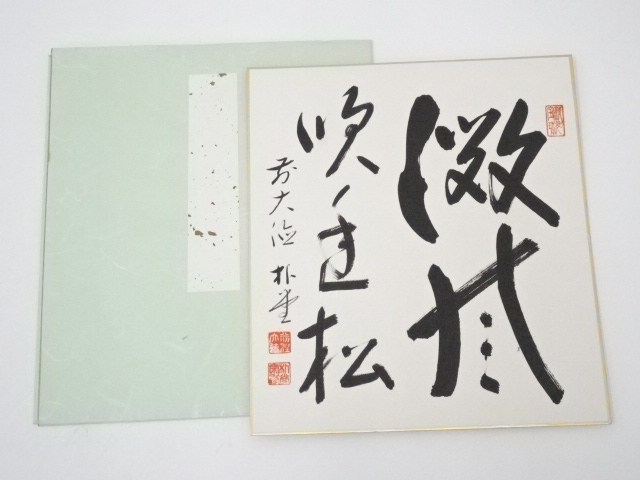 微風
吹幽松
前大徳 朴堂